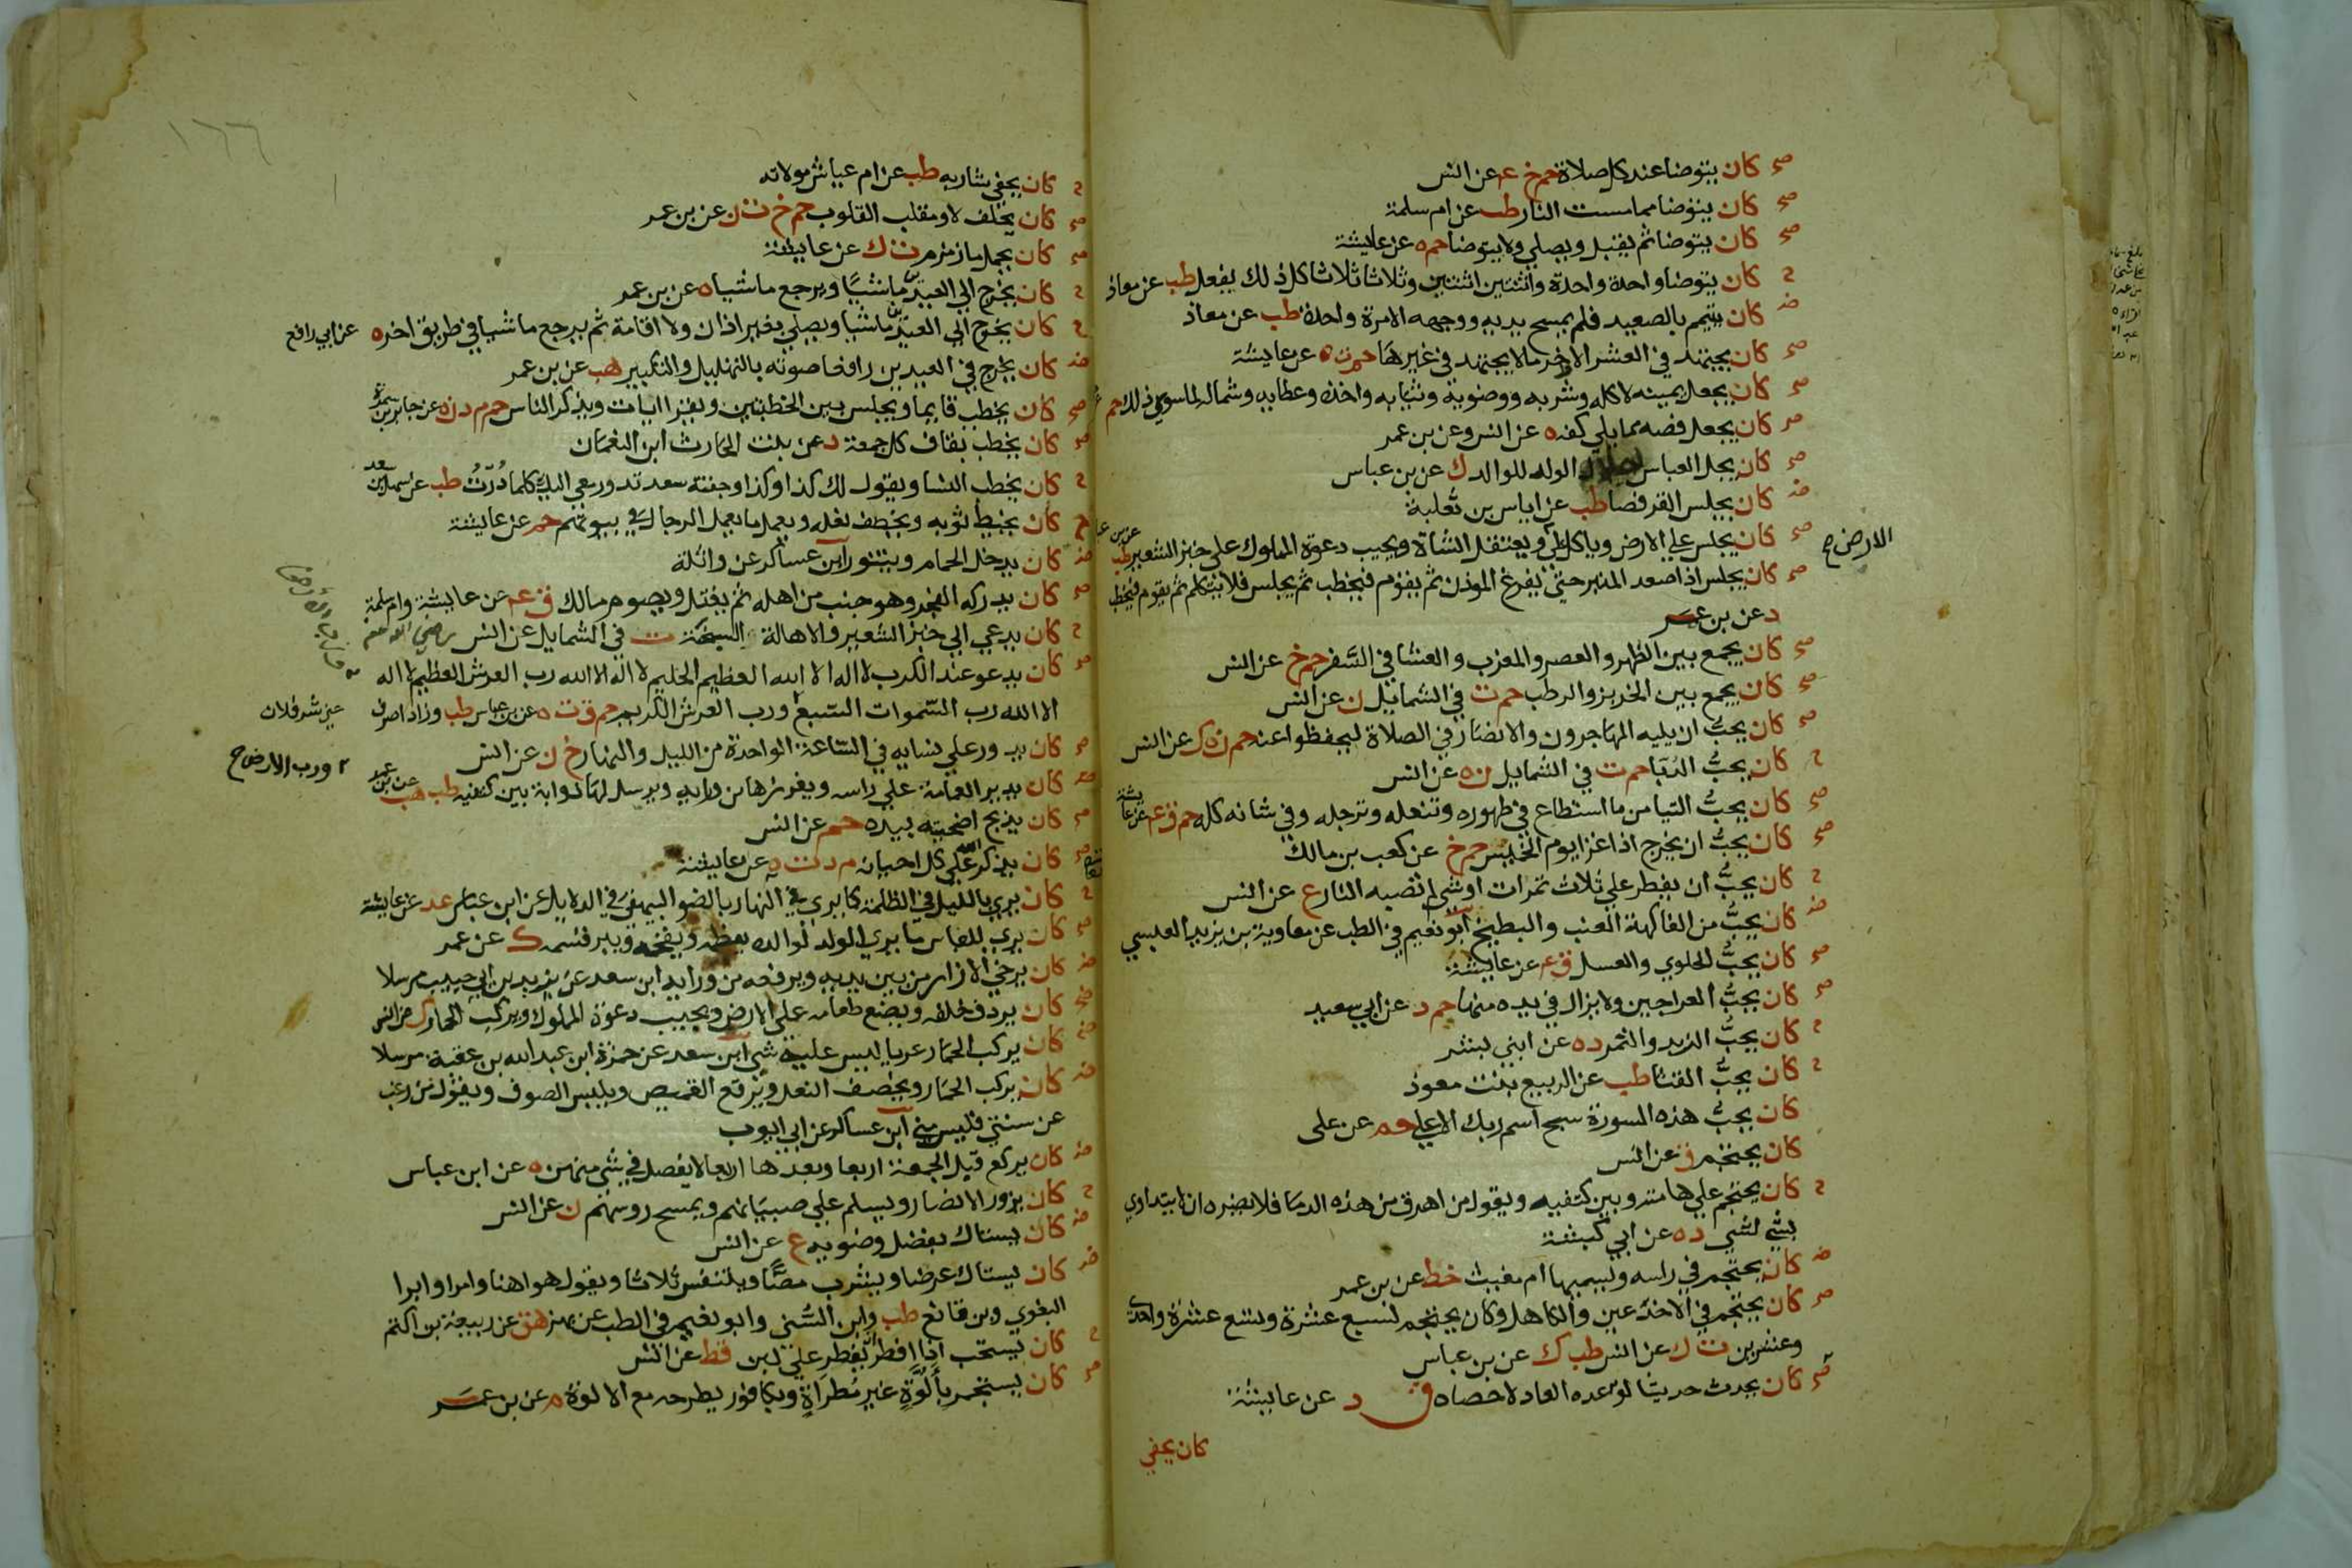 صح كان يتوضا عند كل صلاة حم خ عه عن انس
صح كان يتوضا مما مست النار طب عن ام سلمة
صح كان يتوضا ثم يقبل ويصلي ولا يتوضا حم ه عن عايشة
ح كان يتوضا واحدة واحدة واثنتين اثنتين وثلاثا ثلاثا كل ذلك يفعل طب عن معاذ
ض كان يتيمم بالصعيد فلم يمسح يديه ووجهه الا مرة واحدة طب عن معاذ
صح كان يجتهد في العشر الاواخر ما لا يجتهد في غيرها حم م ت ه عن عايشة
صح كان يجعل يمينه لاكله وشربه ووضوية وثيابه واخذه وعطايه وشماله لما سوي ذلك حم
صح كان يجعل فصه مما يلي كفه ه عن انس وعن بن عمر
صح كان يجل العباس اجلال الولد للوالد ك عن بن عباس
ض كان يجلس القرفصا طب عن اياس بن ثعلبة
صح كان يجلس علي الارض وياكل علي ويعتقل الشاة ويجيب دعوة المملوك علي خبز الشعير طب عن بن عباس
الارض ح
صح كان يجلس اذا صعد المنبر حتي يفرغ الموذن ثم يقوم فيخطب ثم يجلس فلا يتكلم ثم يقوم فيخطب
د عن بن عمر
صح كان يجمع بين الظهر والعصر والمغرب والعشا في السفر حم خ عن انس
صح كان يجمع بين الخربز والرطب حم ت في الشمايل ن عن انس
صح كان يحب ان يليه المهاجرون والانصار في الصلاة ليحفظوا عنه حم ن ه ك عن انس
ح كان يحب الدبا حم ت في الشمايل ن ه عن انس
صح كان يحب التيامن ما استطاع في طهوره وتنعله وترجله وفي شانه كله حم ق عه عن عايشة
صح كان يحب ان يخرج اذا غزا يوم الخميس حم خ عن كعب بن مالك
ح كان يحب ان يفطر علي ثلاث تمرات او شي لم تصبه النار ع عن انس
ض كان يحب من الفاكهة العنب والبطيخ ابو نعيم في الطب عن معاوية بن يزيد العبسي
صح كان يحب الحلوي والعسل ق عه عن عايشة
صح كان يحب العراجين ولا يزال في يده منها حم د عن ابي سعيد
ح كان يحب الزبد والتمر د ه عن ابني بشر
ح كان يحب القثا طب عن الربيع بنت معوذ
كان يحب هذه السورة سبح اسم ربك الاعلي حم عن علي
كان يحتجم ق عن انس
ح كان يحتجم علي هامته وبين كتفيه ويقول من اهرق من هذه الدما فلا يضره ان لا يتداوي
بشي لشي د ه عن ابي كبشة
ض كان يحتجم في راسه ويسميها ام مغيث خط عن بن عمر
صح كان يحتجم في الاخدعين والكاهل وكان يحتجم لسبع عشرة وتسع عشرة واحدي
وعشرين ت ك عن انس طب ك عن بن عباس
صح كان يحدث حديثا لو عده العاد لاحصاه ق د عن عايشة
كان يحفي
١٦٦
ح كان يحفي شاربه طب عن ام عياش مولاته
صح كان يحلف لا ومقلب القلوب حم خ ت ن عن بن عمر
صح كان يحمل ما زمزم ت ك عن عايشة
ح كان يخرج الي العيدين ماشيا ويرجع ماشيا ه عن بن عمر
ح كان يخرج الي العيدين ماشيا ويصلي بغير اذان ولا اقامة ثم يرجع ماشيا في طريق اخر ه عن ابي رافع
ض كان يخرج في العيدين رافعا صوته بالتهليل والتكبير هب عن بن عمر
صح كان يخطب قايما ويجلس بين الخطبتين ويقرا ايات ويذكر الناس حم م د ن ه عن جابر بن سمرة
صح كان يخطب بقاف كل جمعة د عن بنت الحارث ابن النعمان
ح كان يخطب النسا ويقول لك كذا وكذا وجفنة سعد تدور معي اليك كلما درت طب عن سهل بن سعد
ح كان يخيط ثوبه ويخصف نعله ويعمل ما يعمل الرجال في بيوتهم حم عن عايشة
ض كان يدخل الحمام ويتنور ابن عساكر عن واثلة
صح كان يدركه الفجر وهو جنب من اهله ثم يغتسل ويصوم مالك ق عه عن عايشة وام سلمة
ح كان يدعي الي خبز الشعير والاهالة السنخة ت في الشمايل عن انس رضي الله عنهم
صح كان يدعو عند الكرب لا اله الا الله العظيم الحليم لا اله الا الله رب العرش العظيم لا اله
الا الله رب السموات السبع ورب العرش الكريم حم ق ت ه عن بن عباس طب وزاد اصرف عني شر فلان
٢ ورب الارض ح
صح كان يدور علي نسايه في الساعة الواحدة من الليل والنهار خ ن عن انس
ض كان يدير العمامة علي راسه ويغرزها من ورايه ويرسل لها ذوابة بين كتفيه طب هب عن بن عمر
صح كان يذبح اضحيته بيده حم عن انس
صح كان يذكر الله علي كل احيانه م د ت ه عن عايشة
ح كان يري بالليل في الظلمة كما يري في النهار بالضو البيهقي في الدلايل عن ابن عباس عد عن عايشة
صح كان يري للعباس ما يري الولد لوالده يعظمه ويفخمه ويبر قسمه ك عن عمر
ض كان يرخي الازار من بين يديه ويرفعه من ورايه ابن سعد عن يزيد بن ابي حبيب مرسلا
صح كان يردف خلفه ويضع طعامه علي الارض ويجيب دعوة المملوك ويركب الحمار ك عن انس
ض كان يركب الحمار عريا ليس عليه شي ابن سعد عن حمزة ابن عبد الله بن عقبة مرسلا
ض كان يركب الحمار ويخصف النعل ويرقع القميص ويلبس الصوف ويقول من رغب
عن سنتي فليس مني ابن عساكر عن ابي ايوب
ض كان يركع قبل الجمعة اربعا وبعدها اربعا لا يفصل في شي منهن ه عن ابن عباس
ح كان يزور الانصار ويسلم علي صبيانهم ويمسح روسهم ن عن انس
ض كان يستاك بفضل وضويه ع عن انس
ض كان يستاك عرضا ويشرب مصا ويتنفس ثلاثا ويقول هو اهنا وامرا وابرا
البغوي وبن قانع طب وابن السني وابو نعيم في الطب عن بهز هق عن ربيعة بن اكثم
ح كان يستحب اذا افطر يفطر علي لبن قط عن انس
صح كان يستجمر بألوة غير مطراة وبكافور يطرحه مع الالوة م عن بن عمر